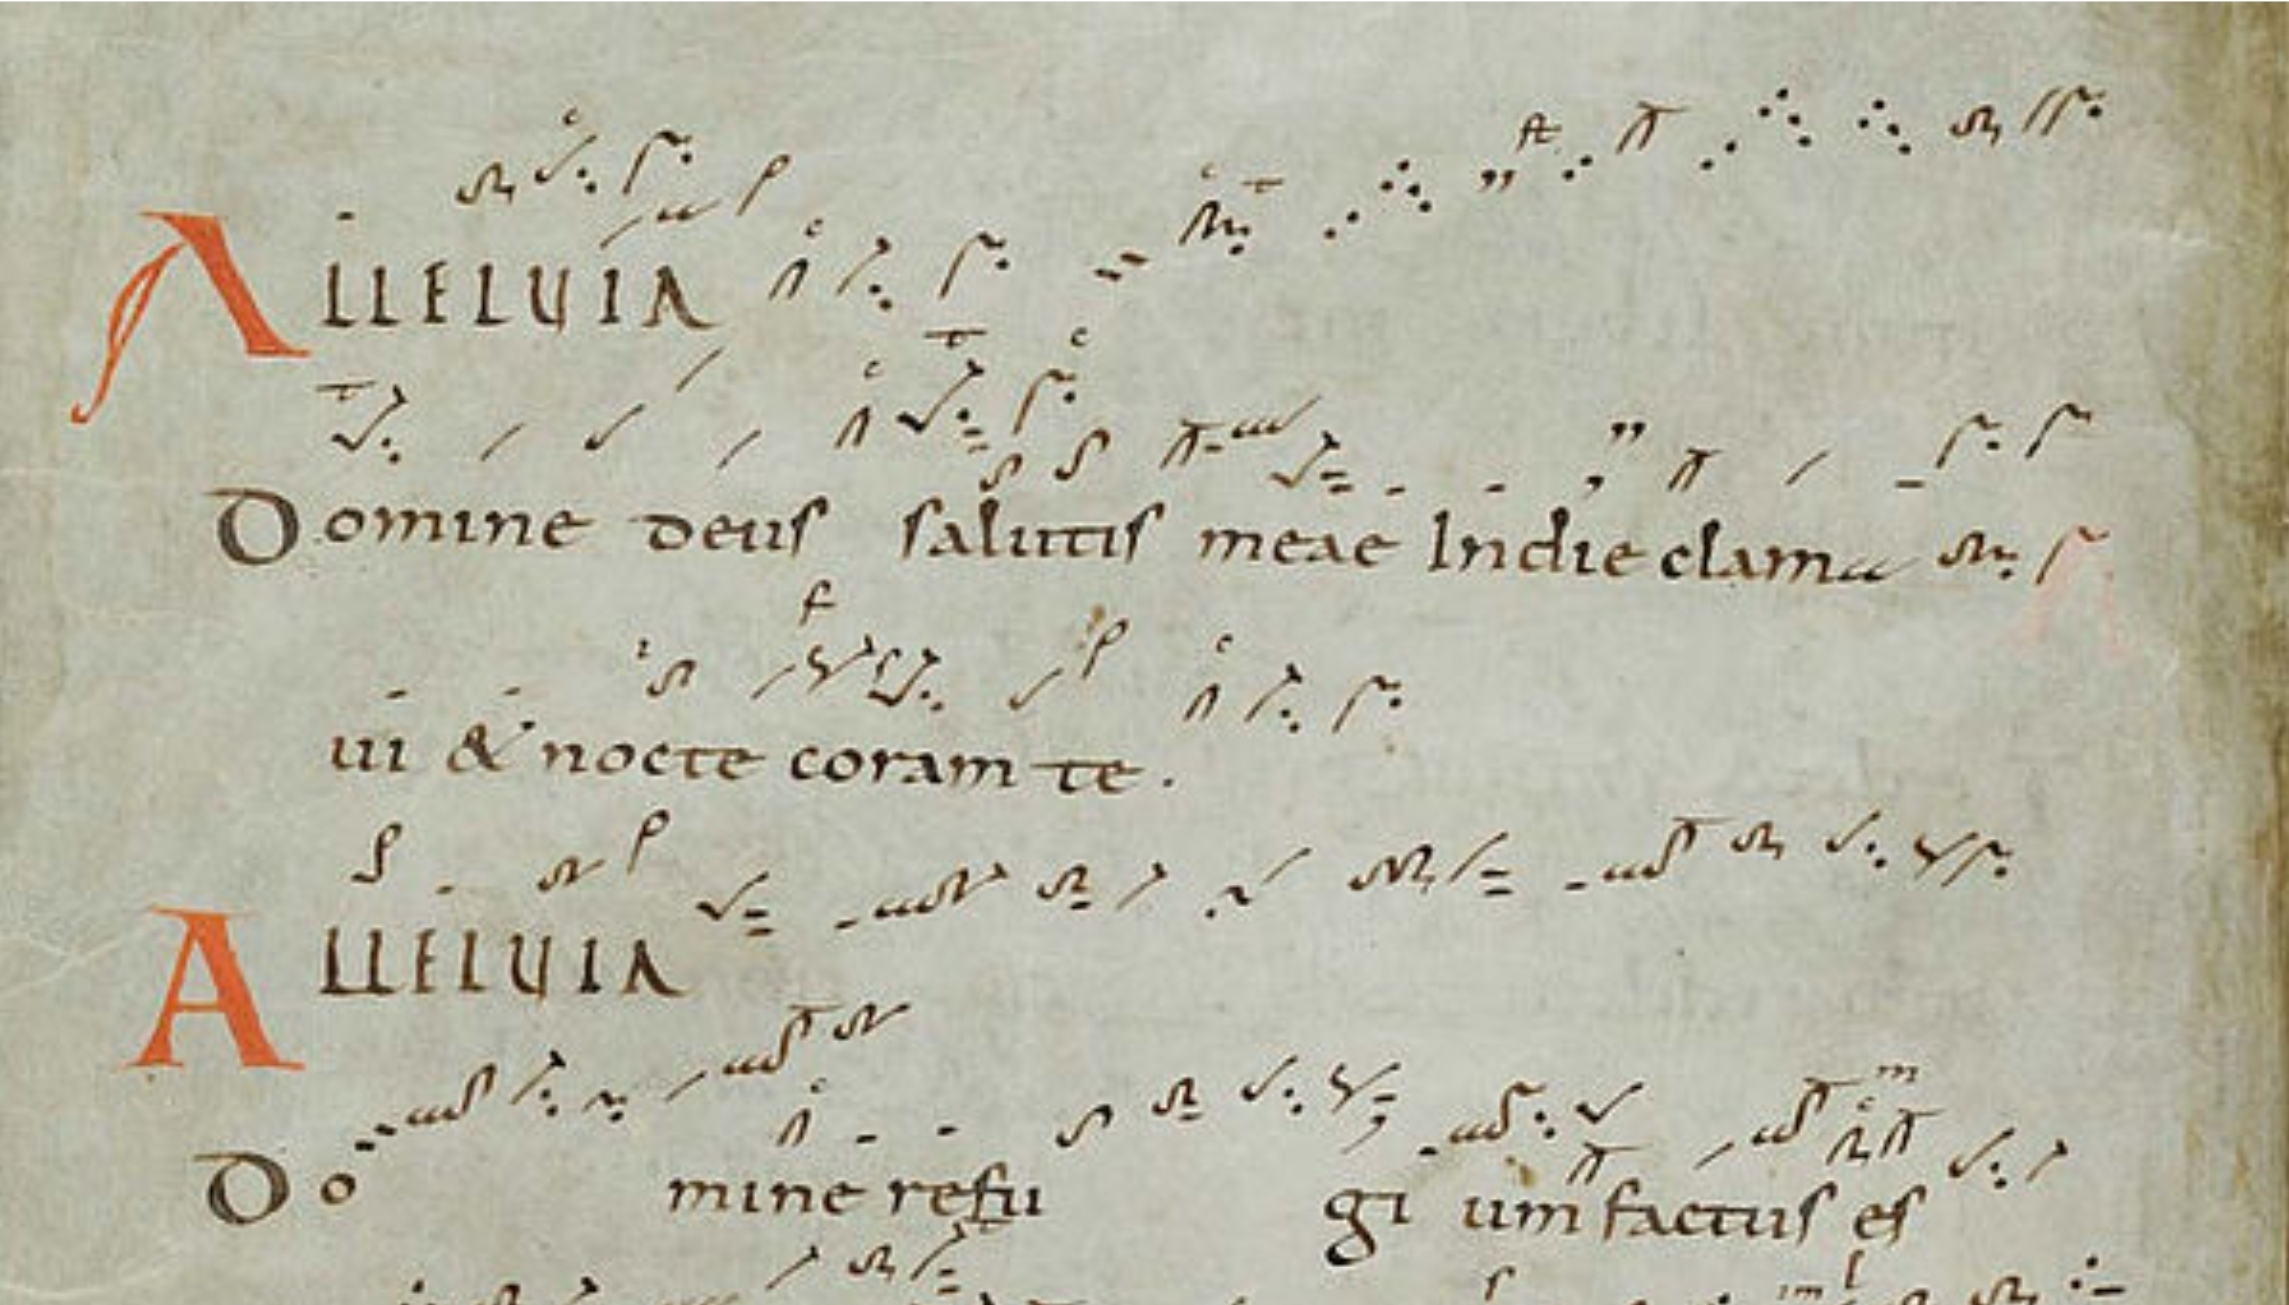 ALLELUIA
Domine deus salutis meae In die clama
ui & nocte coram te.
ALLELUIA
Do mine refu gi um factus es